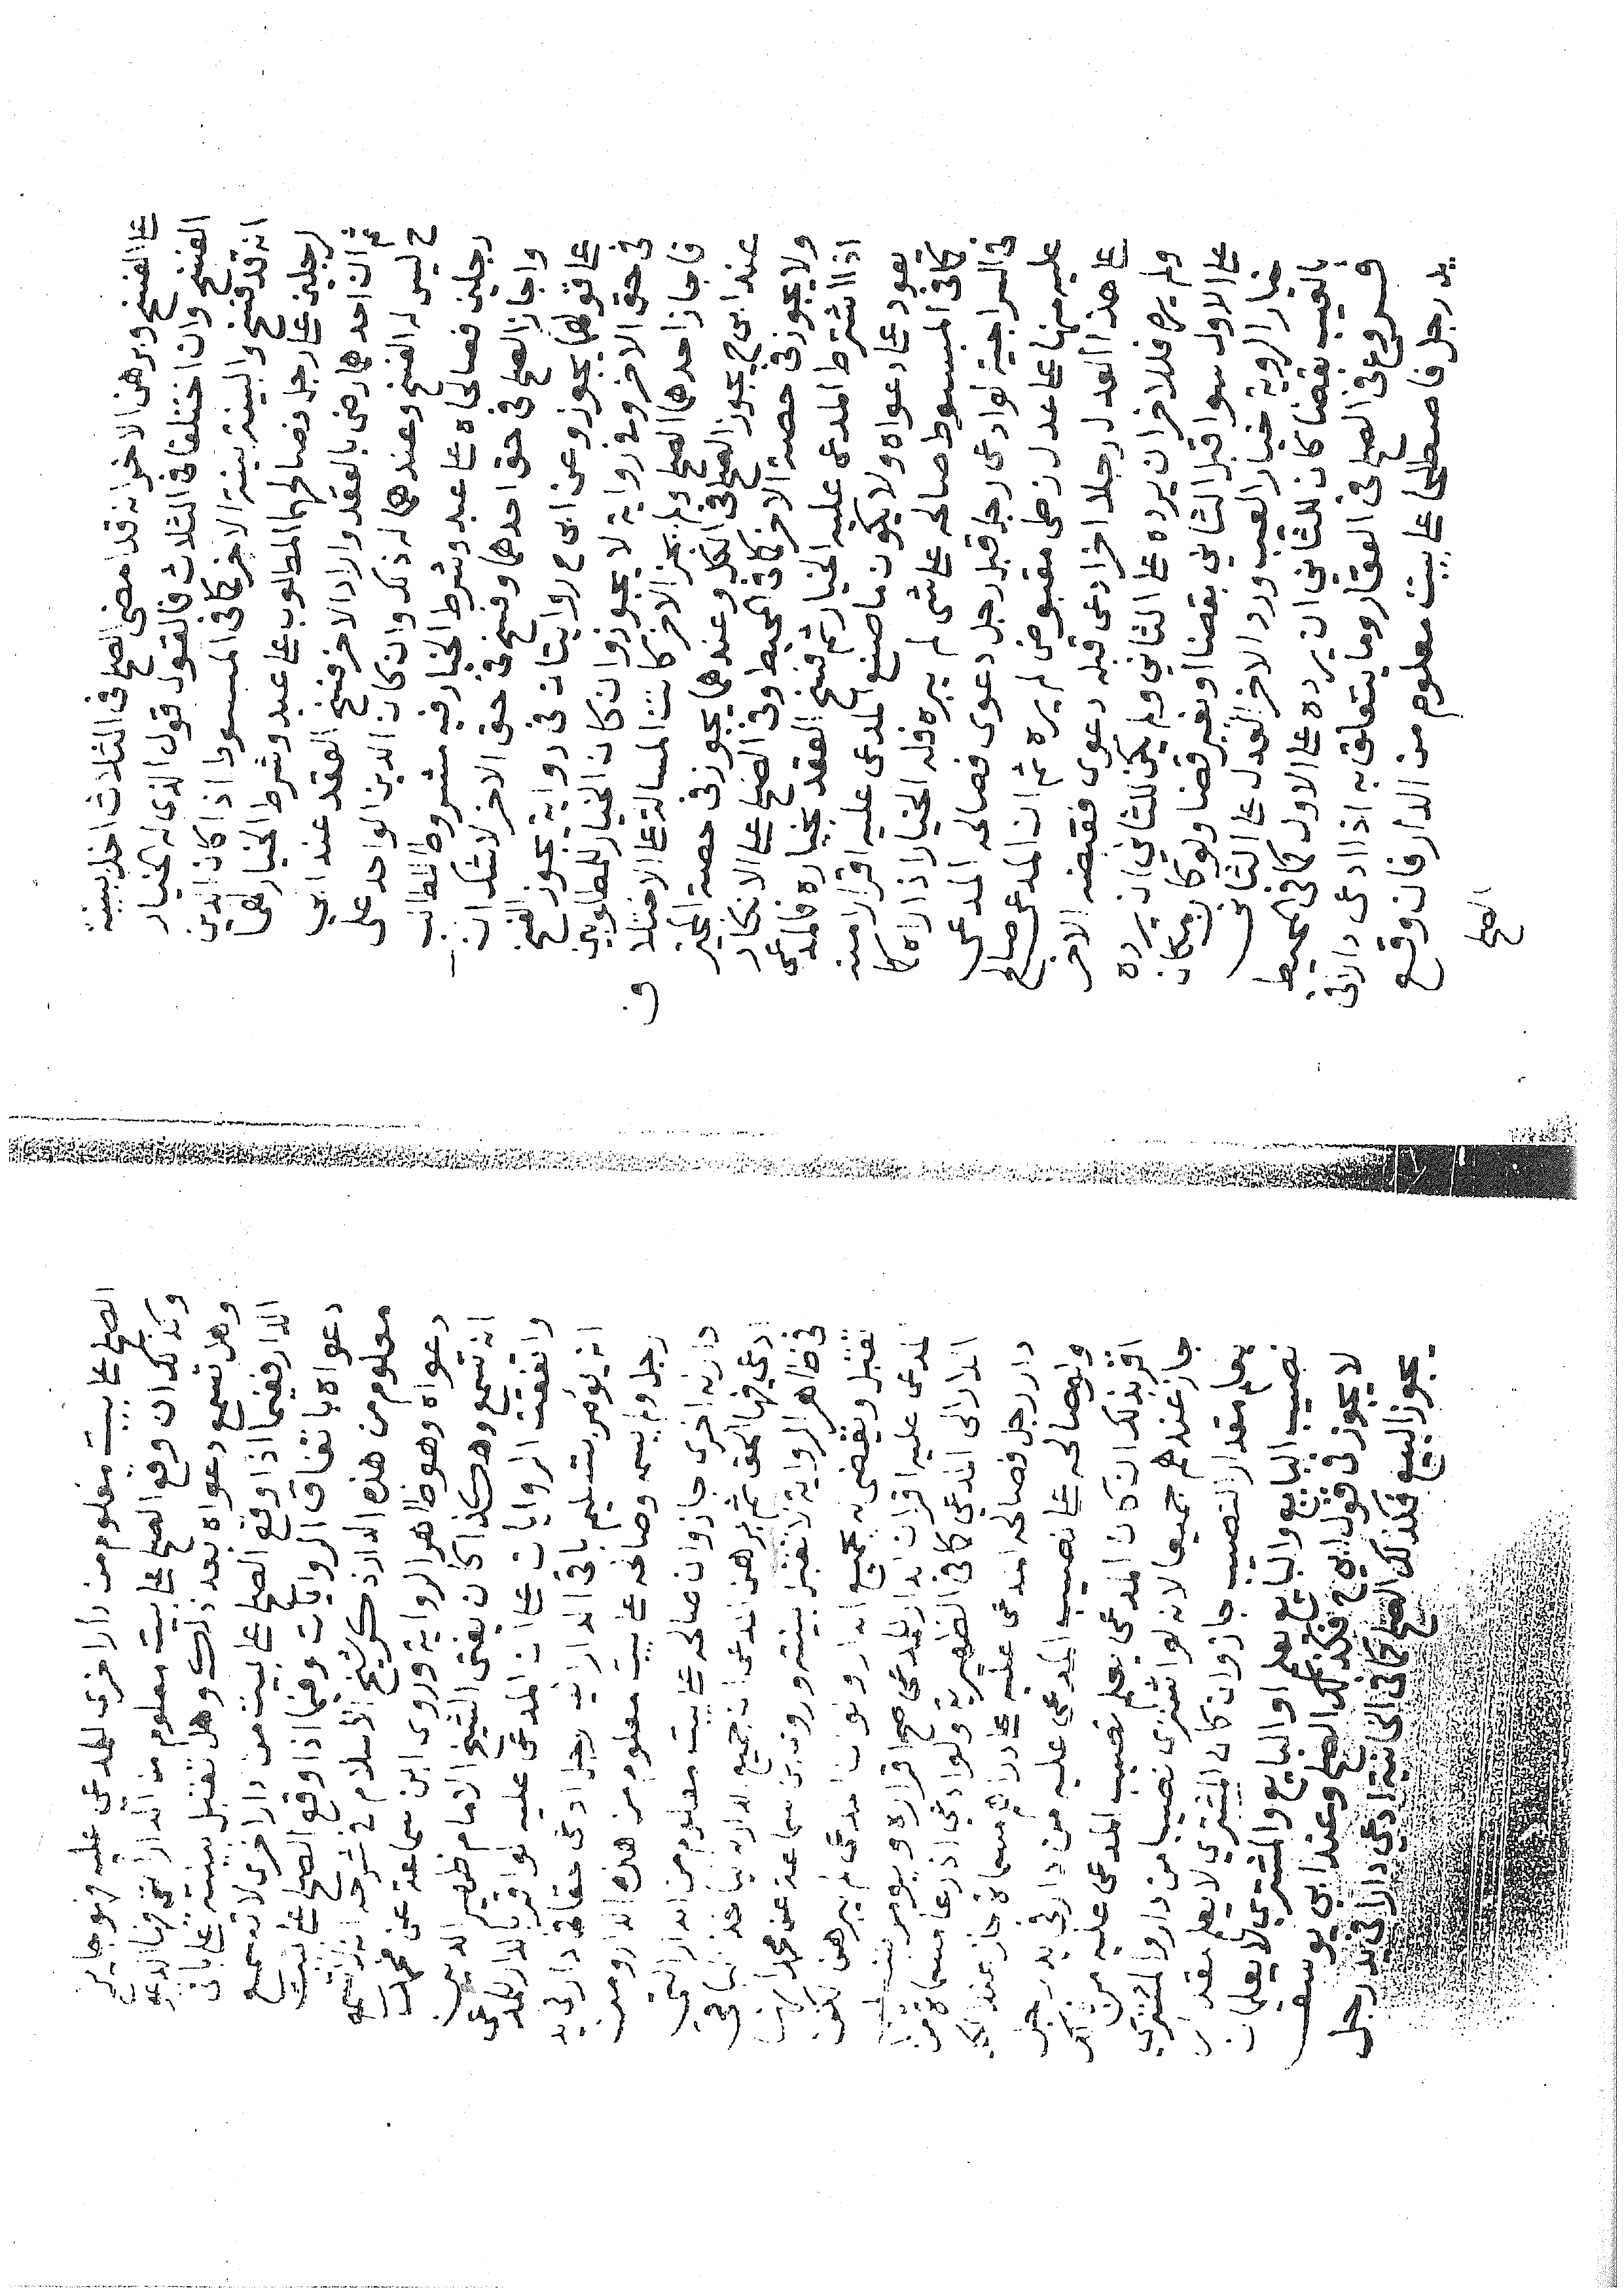 على الفسخ وبرهن الاخر انه قد امضى الصلح في الثلاث اخذ ببينة
الفسخ وان اختلفا في الثلاث فالقول قول الذي له الخيار
انه قد فسخ والبينة بينة الاخر كما في المبسوط اذا كان الدين
رجلين على رجل وصالحهما المطلوب على عبد وشرط الخيار لهما
ثم ان احدهما رضي بالعقد والاراد الاخر فسخ العقد عند ابي
ح ليس له الفسخ وعندهما له ذلك وان كان الدين لواحد على
رجلين فصالحاه على عبد وشرط الخيار فيه مشروط للطالب
واجاز الصلح في حق احدهما وفسخ في حق الاخر لا شك ان
على قولهما يجوز وعن ابي ح روايتان في رواية يجوز الفسخ
في حق الاخر وفي رواية لا يجوز وان كان الخيار للمطلوبين
فاجاز احدهما الصلح ولم يجز الاخر كانت المسالة على الاختلاف
عند ابي ح يجوز الصلح في الكل وعندهما يجوز في حصة المجيز
ولا يجوز في حصة الاخر كما في المحيط وفي الصلح على الانكار
اذا اشترط المدعى عليه الخيار ثم فسخ العقد بخياره فالمدعي
يعود على دعواه ولا يكون ما صنع المدعى عليه اقرارا منه
كما في المبسوط صالحه على شي لم يره فله الخيار اذا راه كما
في السراجية لو ادعى رجل قبل رجل دعوى فصالحه المدعى
عليه منها على عدل زطي مقبوض لم يره ثم ان المدعي صالح
على هذا العدل رجلا اخر ادعى قبله دعوى فقبضه الاخر
ولم يره فللاخر ان يرده على الثاني ولم يكن للثاني ان يرده
على الاول سوا قبل الثاني بقضا او بغير قضا ولو كان مكان
خيار الروية خيار العيب ورد الاخر العدل على الثاني
بالعيب بقضا كان للثاني ان يرده على الاول كما في المحيط
فروع في الصلح في العقار وما يتعلق به اذا ادعى دارا في
يد رجل فاصطلحا على بيت معلوم من الدار فان وقع
الصلح
الصلح على بيت معلوم من دار اخرى للمدعى عليه فهو جايز
وكذلك ان وقع الصلح على بيت معلوم من الدار التي فيها الدعوى
وهل تسمع دعواه بعد ذلك وهل تقبل بينته على باقي
الدار ففيما اذا وقع الصلح على بيت من دار اخرى لا تسمع
دعواه باتفاق الروايات وفيما اذا وقع الصلح على بيت
معلوم من هذه الدار ذكر شيخ الاسلام في شرحه انه لا تسمع
دعواه وهو ظاهر الرواية وروى ابن سماعة عن محمد
انه تسمع وهكذا كان يفتي الشيخ الامام ظهير الدين
واتفقت الروايات على ان المدعى عليه لو اقر بالدار للمدعي
انه يؤمر بتسليم باقي الدار اليه رجل ادعى حقا في دار في يد
رجل ولم يسمه وصالحه على بيت معلوم من هذه الدار ومن
دار اخرى جاز وان صالحه على بيت معلوم من الدار التي
ادعى فيها الحق ثم برهن المدعي ان جميع الدار له ياخذ الباقي
في ظاهر الرواية لا تقبل بينته وروى ابن سماعة عن محمد انها
تقبل ويقضى به بجميع الدار ولو ان المدعي لم يبرهن لكن
المدعى عليه اقر ان الدار للمدعي صح اقراره ويومر بتسليم
الدار الى المدعي كما في الظهيرية ولو ادعى اذرعا مسماة من
دار رجل فصالحه المدعى عليه على دراهم مسماة جاز عند الكل
ولو صالحه على نصيب المدعى عليه من دار في يد رجل
اقر بذلك ان كان المدعي يعلم نصيب المدعى عليه من
جاز عندهم جميعا لانه لو اشترى نصيبا من دار والمشتري
يعلم مقدار النصيب جاز وان كان المشتري لا يعلم بقدر
نصيب البايع والبايع يعلم او البايع والمشتري لا يعلمان
لا يجوز في قول ابي ح فكذلك الصلح وعند ابي يوسف
يجوز البيع فكذلك الصلح كما في الخانية ادعى دارا في يد رجل